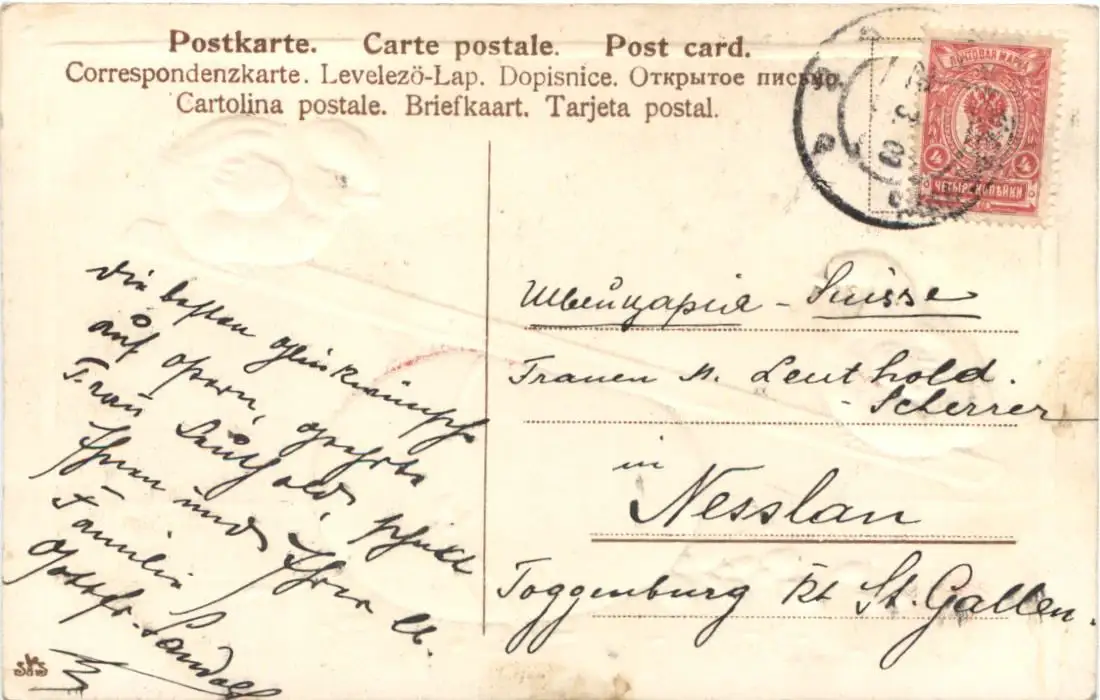 Postkarte. Carte postale. Post card.
Correspondenzkarte. Levelező-Lap. Dopisnice. Открытое письмо.
Cartolina postale. Briefkaart. Tarjeta postal.
ПОЧТОВАЯ МАРКА
4 4
ЧЕТЫРЕ КОПѢЙКИ
Die besten Glückwünsche
auf Ostern, geehrte
Frau Leuthold, schickt
Ihnen und Ihrer lb.
Familie
Gottfr.
Швейцарія - Suisse
Frauen N. Leuthold.
- Scherrer
in
Nesslau
Toggenburg Kt St. Gallen.